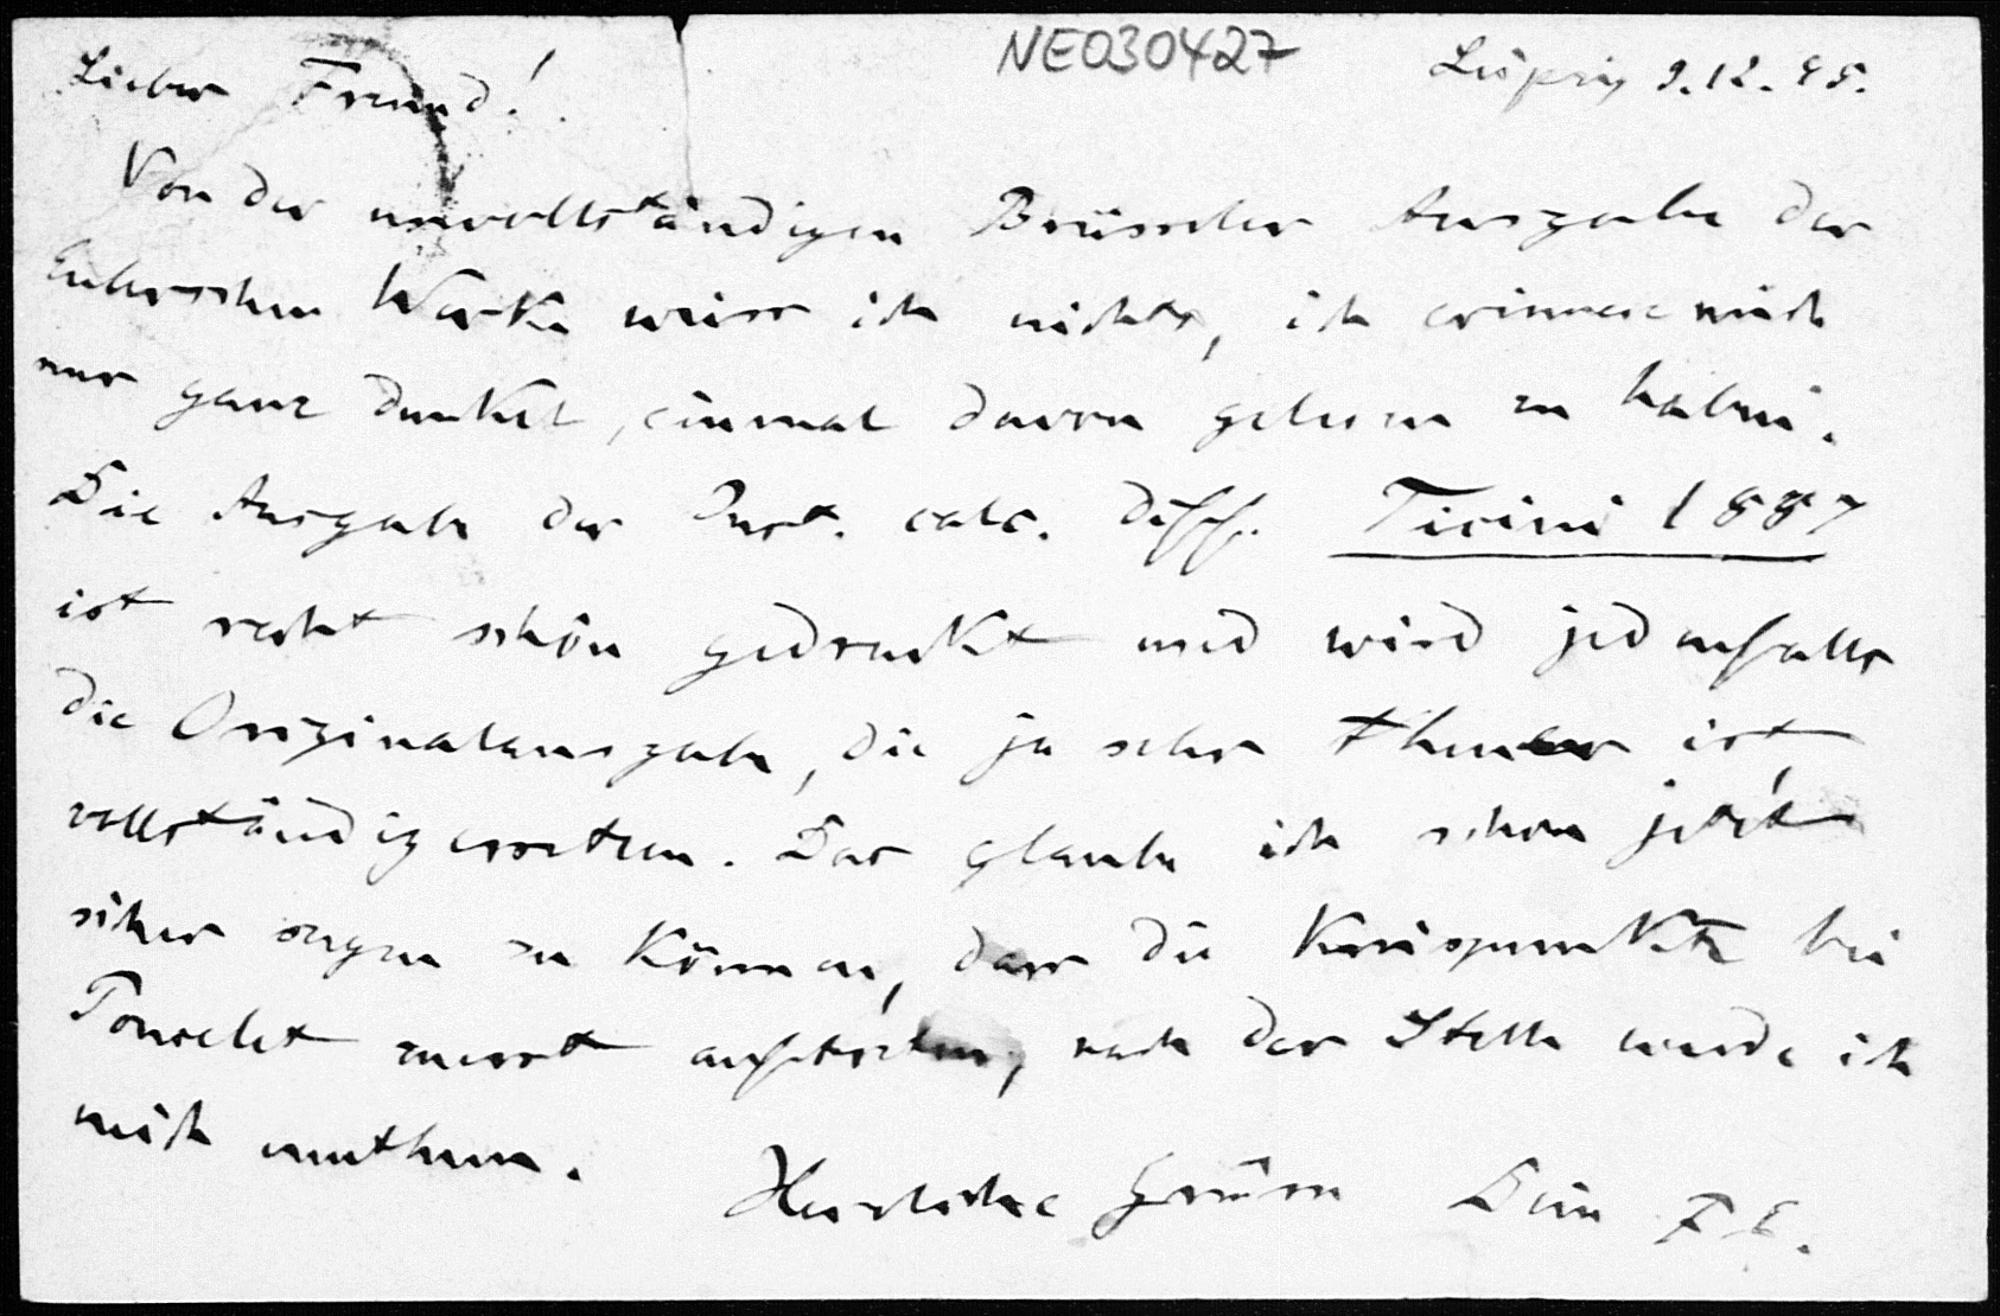 NE030427
Leipzig 9.12.95.
Lieber Freund!
Von der unvollständigen Brüsseler Ausgabe der
Eulerschen Werke weiss ich nichts, ich erinnere mich
nur ganz dunkel, einmal davon gelesen zu haben.
Die Ausgabe der Inst. calc. diff. Ticini 1887
ist recht schön gedruckt und wird jedenfalls
die Originalausgabe, die ja sehr theuer ist,
vollständig ersetzen. Das glaube ich schon jetzt
sicher sagen zu können, dass die Kreispunkte bei
Poncelet zuerst auftreten, nach der Stelle werde ich
mich umthun.
Herzliche Grüsse Dein F E.